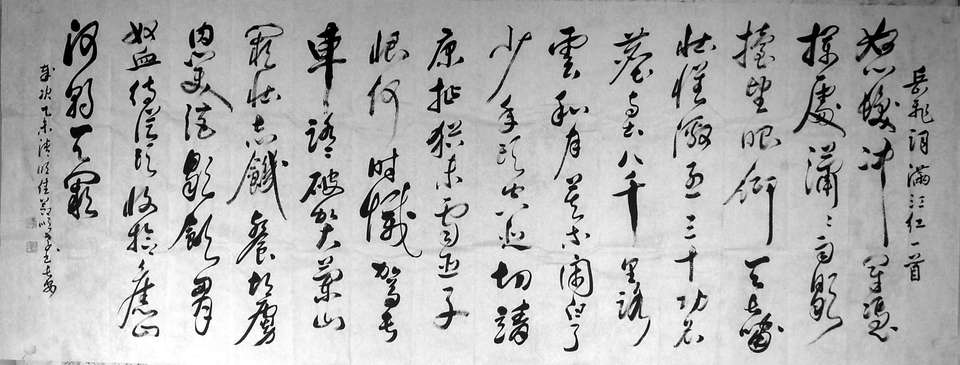 岳飛詞滿江紅一首
怒髮冲冠憑
欄處瀟瀟雨歇
抬望眼仰天長嘯
壯懷激烈三十功名
塵與土八千里路
雲和月莫等閒白了
少年頭空悲切靖
康恥猶未雪臣子
恨何時滅駕長
車踏破賀蘭山
缺壯志飢餐胡虜
肉笑談渴飲匈
奴血待從頭收拾舊山
河朝天闕
歲次乙未清明佳節